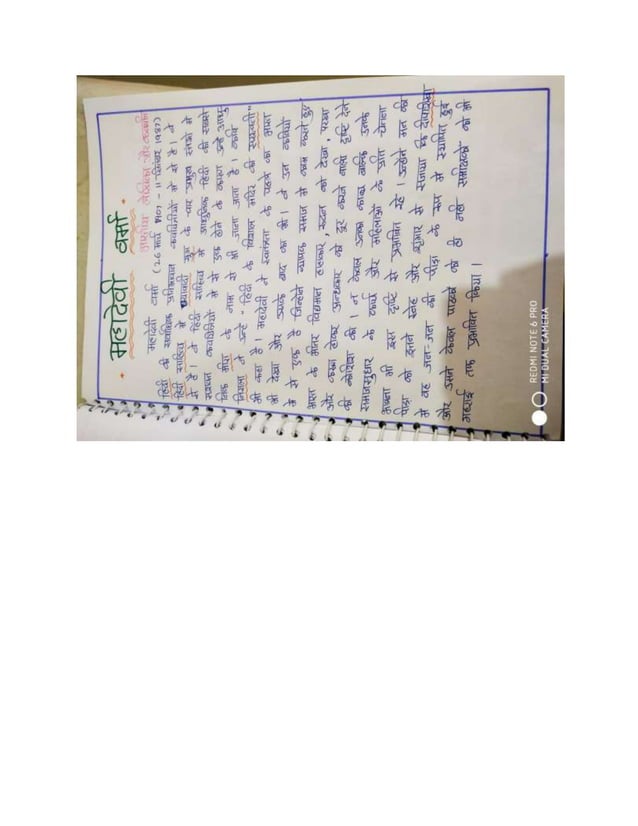 महादेवी वर्मा
भारतीय लेखिका और कवयित्री
महादेवी वर्मा (26 मार्च 1907 - 11 सितम्बर 1987)
हिंदी की सर्वाधिक प्रतिभावान कवयित्रियों में से हैं। वे
हिंदी साहित्य में छायावादी युग के चार प्रमुख स्तंभों में
से हैं। वे हिंदी साहित्य में आधुनिक हिंदी की सबसे
सशक्त कवयित्रियों में से एक होने के कारण उन्हें आधु-
निक मीरा के नाम से भी जाना जाता है। कवि
निराला ने उन्हें "हिंदी के विशाल मंदिर की सरस्वती"
भी कहा है। महादेवी ने स्वतंत्रता के पहले का भारत
भी देखा और उसके बाद का भी। वे उन कवियों
में से एक हैं जिन्होंने व्यापक समाज में काम करते हुए
भारत के भीतर विद्यमान हाहाकार, रूदन को देखा, परखा
और करूण होकर अन्धकार को दूर करने वाली दृष्टि देने
की कोशिश की। न केवल उनका काव्य बल्कि उनके
समाजसुधार के कार्य और महिलाओं के प्रति चेतना
भावना भी इस दृष्टि से प्रभावित रहे। उन्होंने मन की
पीड़ा को इतने स्नेह और शृंगार से सजाया कि दीपशिखा
में वह जन-जन की पीड़ा के रूप में स्थापित हुई
और उसने केवल पाठकों को ही नहीं समीक्षकों को भी
गहराई तक प्रभावित किया।
REDMI NOTE 6 PRO
MI DUAL CAMERA